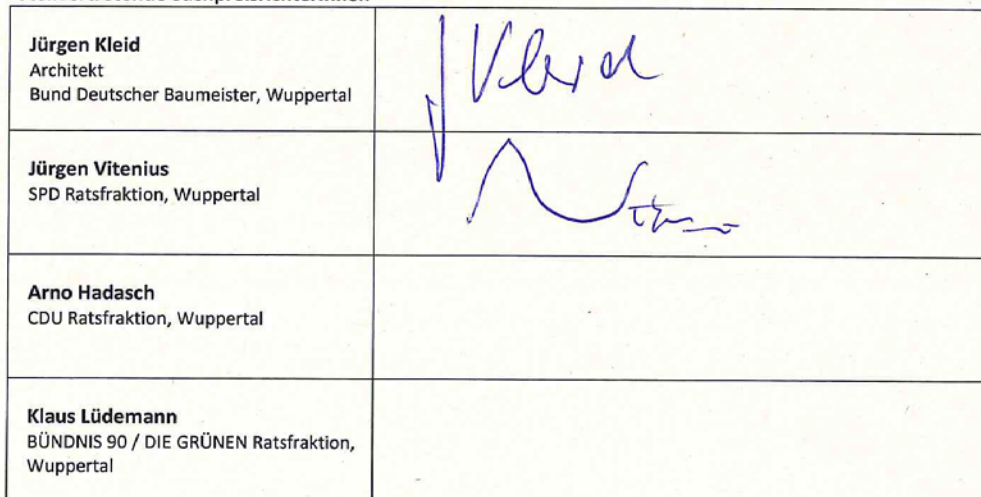 Jürgen Kleid
Architekt
Bund Deutscher Baumeister, Wuppertal
Kleid
Jürgen Vitenius
SPD Ratsfraktion, Wuppertal
Arno Hadasch
CDU Ratsfraktion, Wuppertal
Klaus Lüdemann
BÜNDNIS 90 / DIE GRÜNEN Ratsfraktion,
Wuppertal